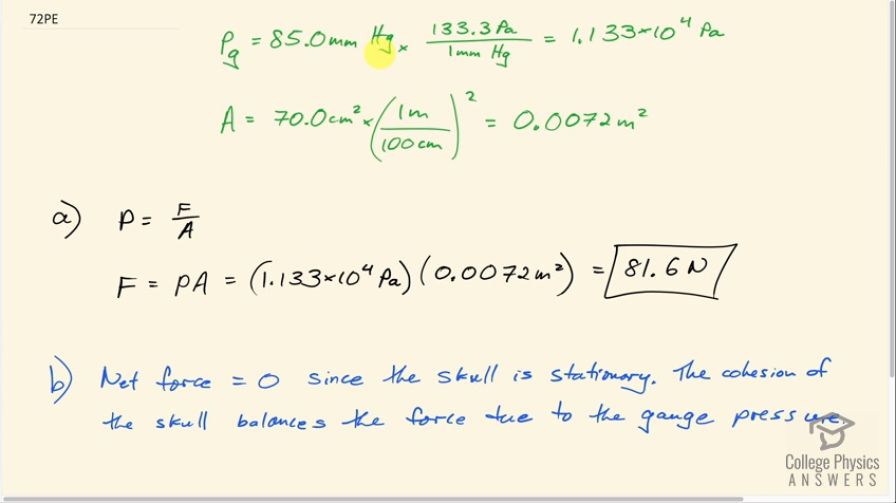 72PE
Pg = 85.0mm Hg × 133.3 Pa / 1mm Hg = 1.133×10⁴ Pa
A = 70.0cm² × (1m / 100cm)² = 0.0072m²
a) P = F / A
F = PA = (1.133×10⁴ Pa)(0.0072m²) = 81.6 N
b) Net force = 0 since the skull is stationary. The cohesion of
the skull balances the force due to the gauge pressure.
College Physics
ANSWERS